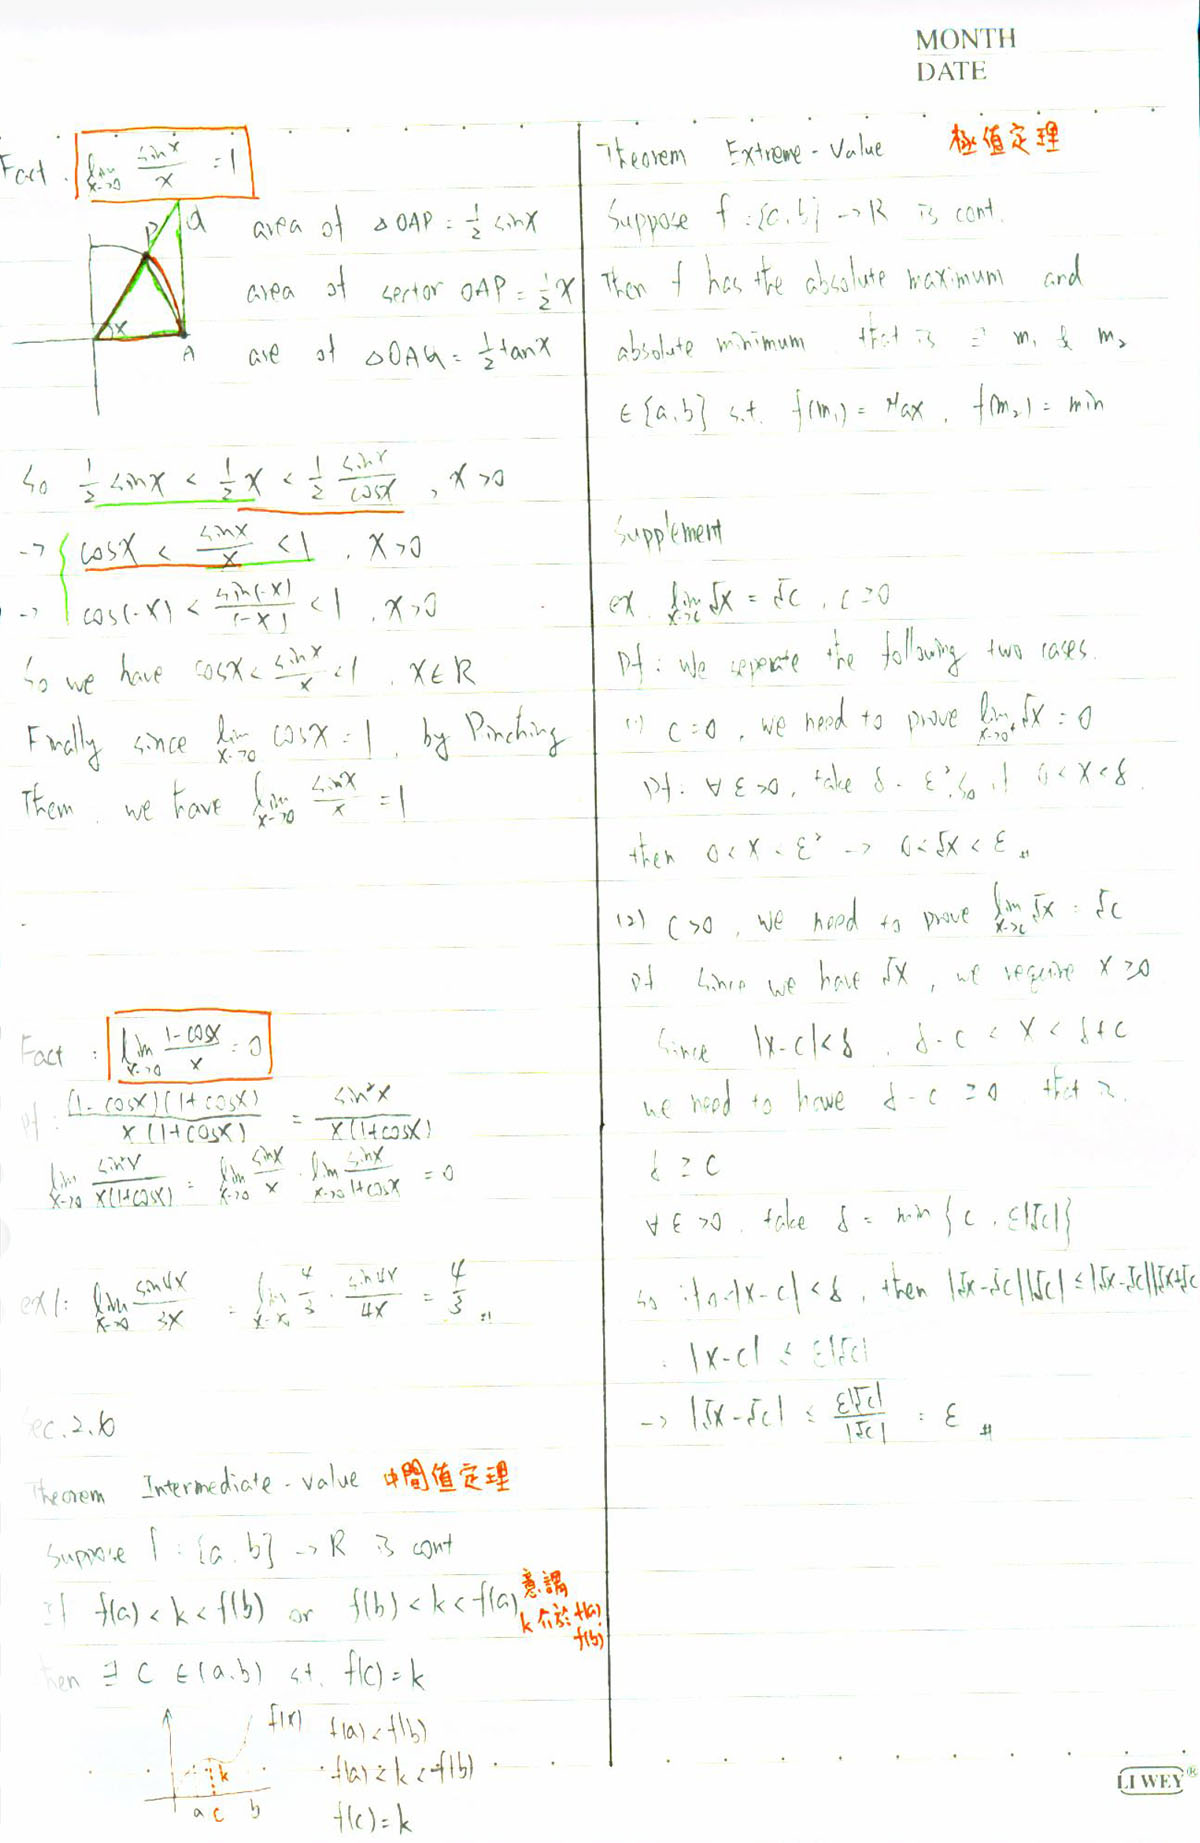 MONTH
DATE
Fact. lim x->0 sinx/x = 1
P Q
x A
area of △OAP = 1/2 sinx
area of sector OAP = 1/2 x
are of △OAQ = 1/2 tanx
So 1/2 sinx < 1/2 x < 1/2 sinx/cosx , x>0
-> cosx < sinx/x < 1 , x>0
-> cos(-x) < sin(-x)/(-x) < 1 , x>0
So we have cosx < sinx/x < 1 , x∈R
Finally since lim x->0 cosx = 1, by Pinching
Them, we have lim x->0 sinx/x = 1
Fact : lim x->0 1-cosx/x = 0
pf : (1-cosx)(1+cosx)/x(1+cosx) = sin²x/x(1+cosx)
lim x->0 sin²x/x(1+cosx) = lim x->0 sinx/x · lim x->0 sinx/1+cosx = 0
ex1: lim x->0 sin4x/3x = lim 4/3 · sin4x/4x = 4/3 #
Sec.2.6
Theorem Intermediate-value 中間值定理
Suppose f : [a,b] -> R is cont
If f(a) < k < f(b) or f(b) < k < f(a) 意謂
k 介於 f(a)
f(b)
then ∃ c ∈ (a,b) s.t. f(c) = k
f(x) f(a) < f(b)
k f(a) < k < f(b)
a c b f(c) = k
Theorem Extreme-Value 極值定理
Suppose f : [a,b] -> R is cont.
Then f has the absolute maximum and
absolute minimum. that is ∃ m₁ & m₂
∈ [a,b] s.t. f(m₁) = Max, f(m₂) = min
Supplement
ex. lim x->c √x = √c , c≥0
Pf : We seperate the following two cases.
(1) c=0, we need to prove lim x->0⁺ √x = 0
Pf : ∀ ε>0, take δ = ε², so if 0 < x < δ.
then 0 < x < ε² -> 0 < √x < ε #
(2) c>0, we need to prove lim x->c √x = √c
Pf since we have √x, we require x≥0
Since |x-c|<δ , δ-c < x < δ+c
we need to have δ-c ≥ 0 that is.
δ ≥ c
∀ ε>0. take δ = min { c , ε|√c| }
so if 0<|x-c|<δ, then |√x-√c||√c| ≤ |√x-√c||√x+√c|
= |x-c| ≤ ε|√c|
-> |√x-√c| ≤ ε|√c|/|√c| = ε #
LI WEY®